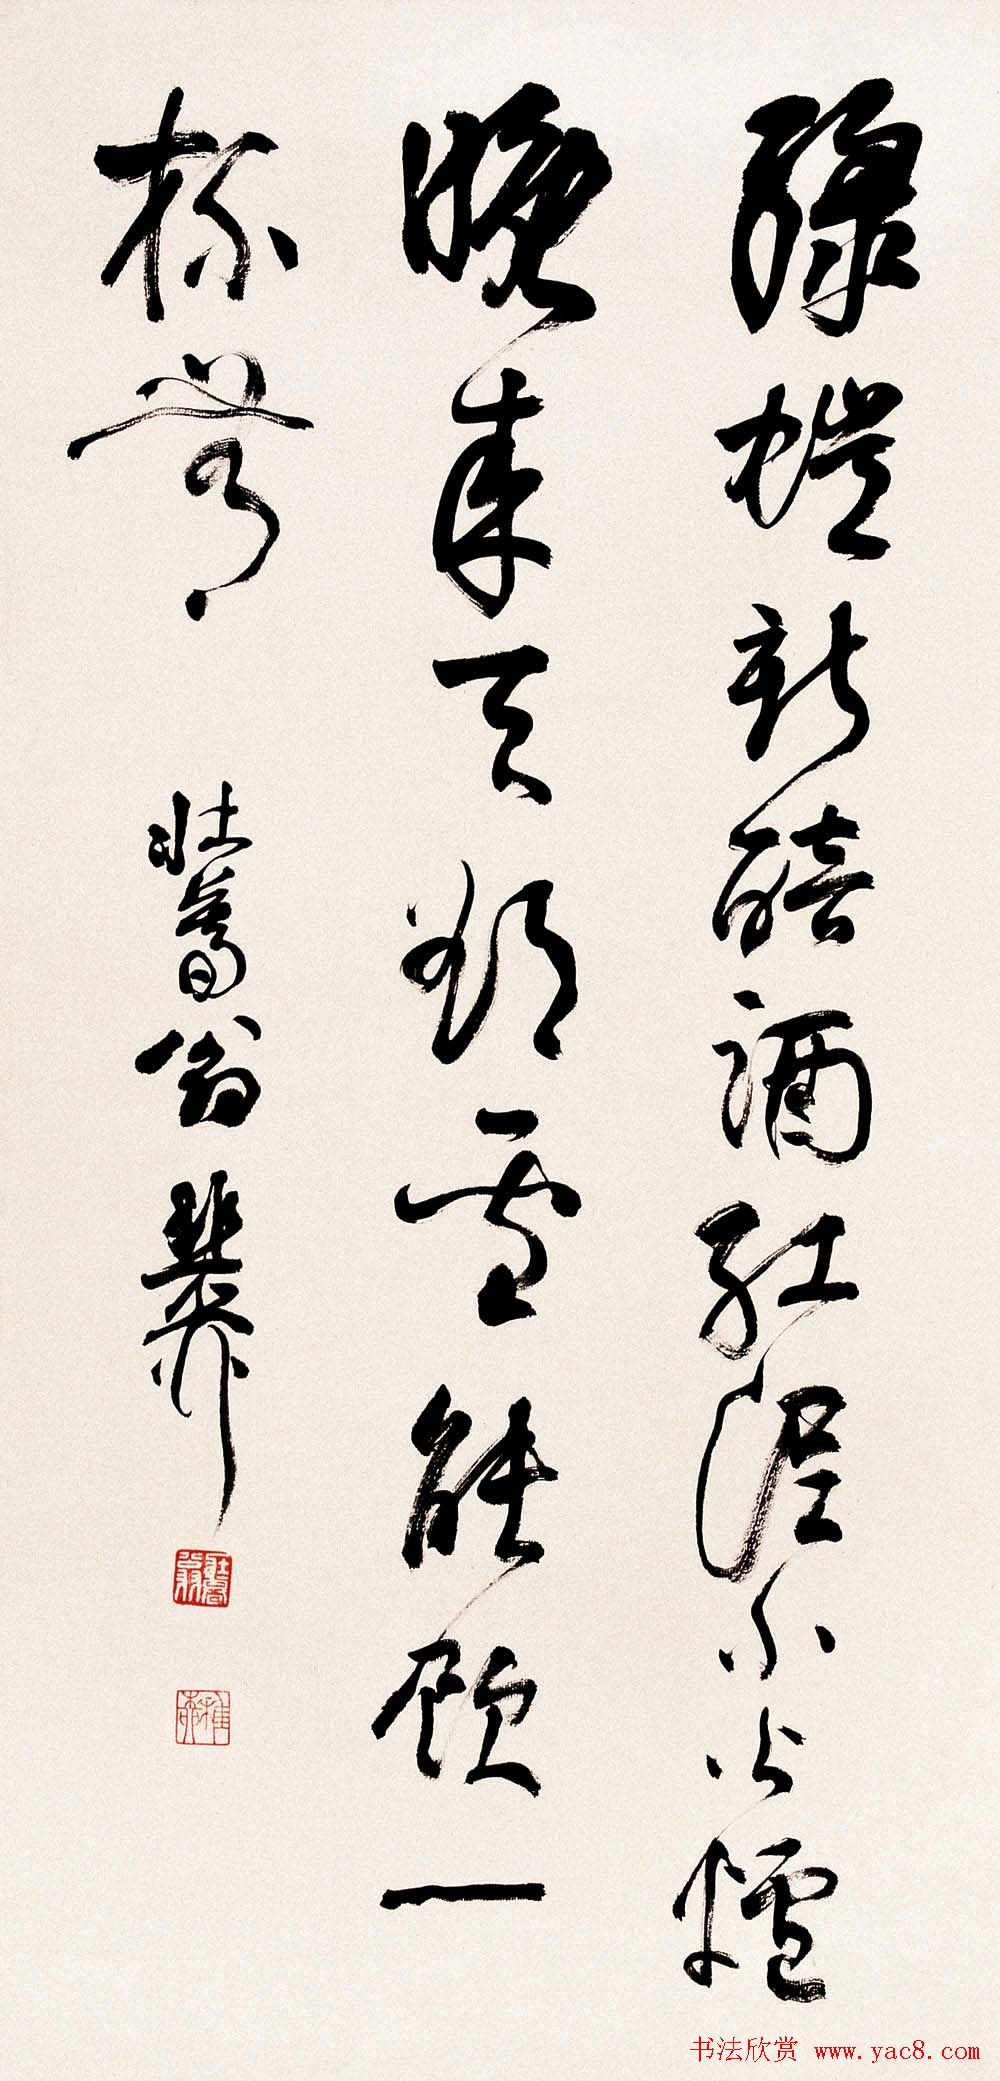 綠螘新醅酒紅泥小火爐
晚來天欲雪能飲一
杯無
壯暮翁稚柳
壯暮翁
稚柳
书法欣赏 www.yac8.com